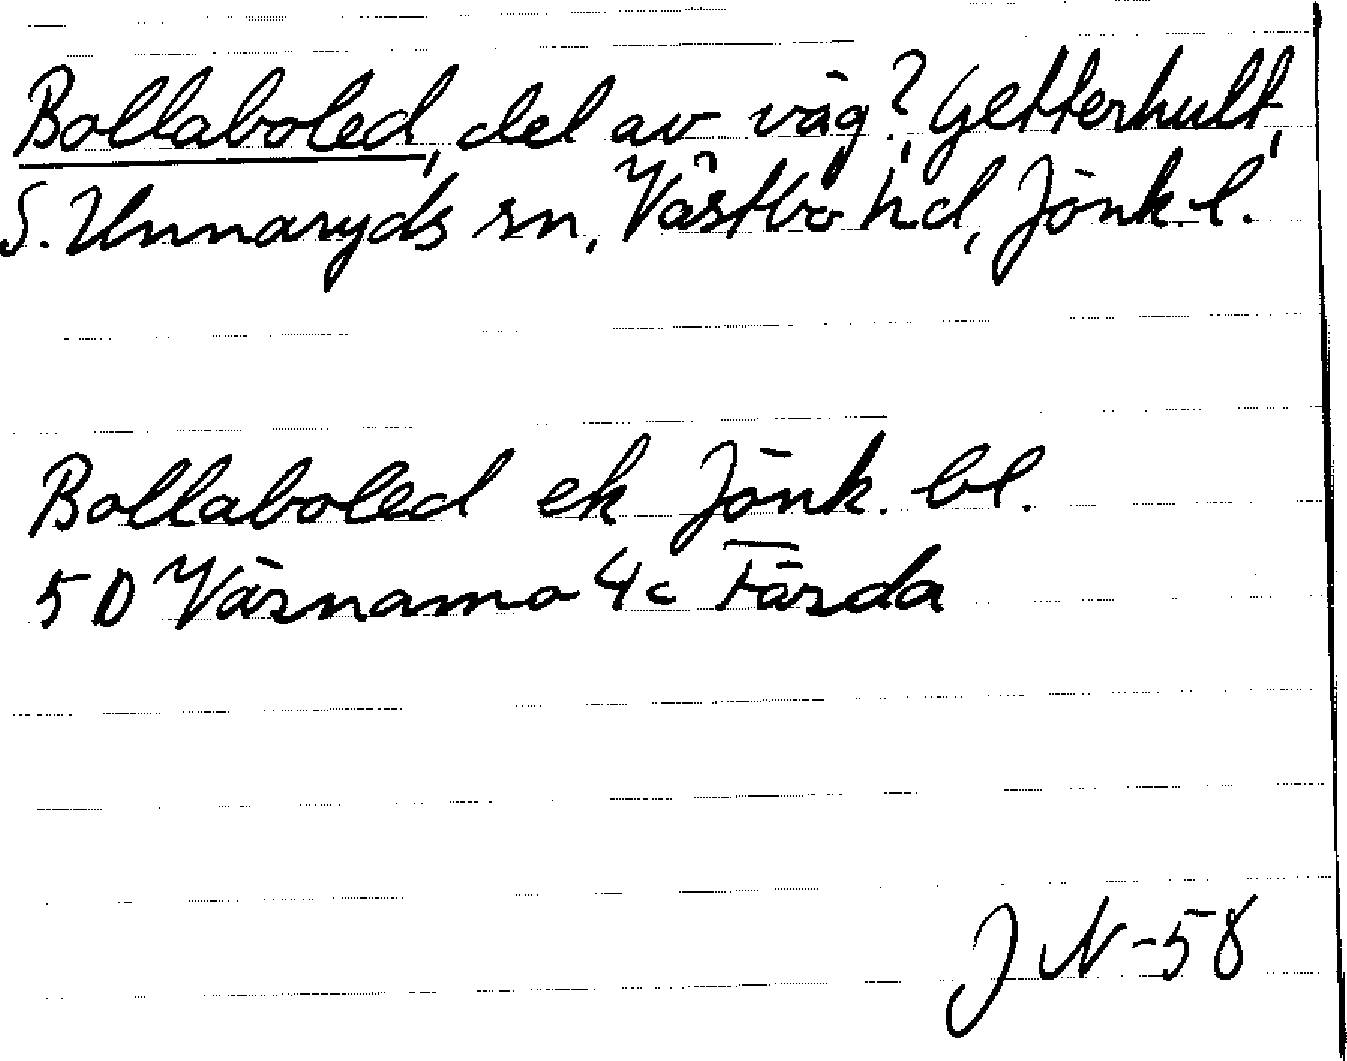 Bollaboled, del av väg?, Getterhult,
S. Unnaryds sn, Västbo hd, Jönk. l.
Bollaboled ek Jönk. bl.
5 D Värnamo 4c Färda
J N -58